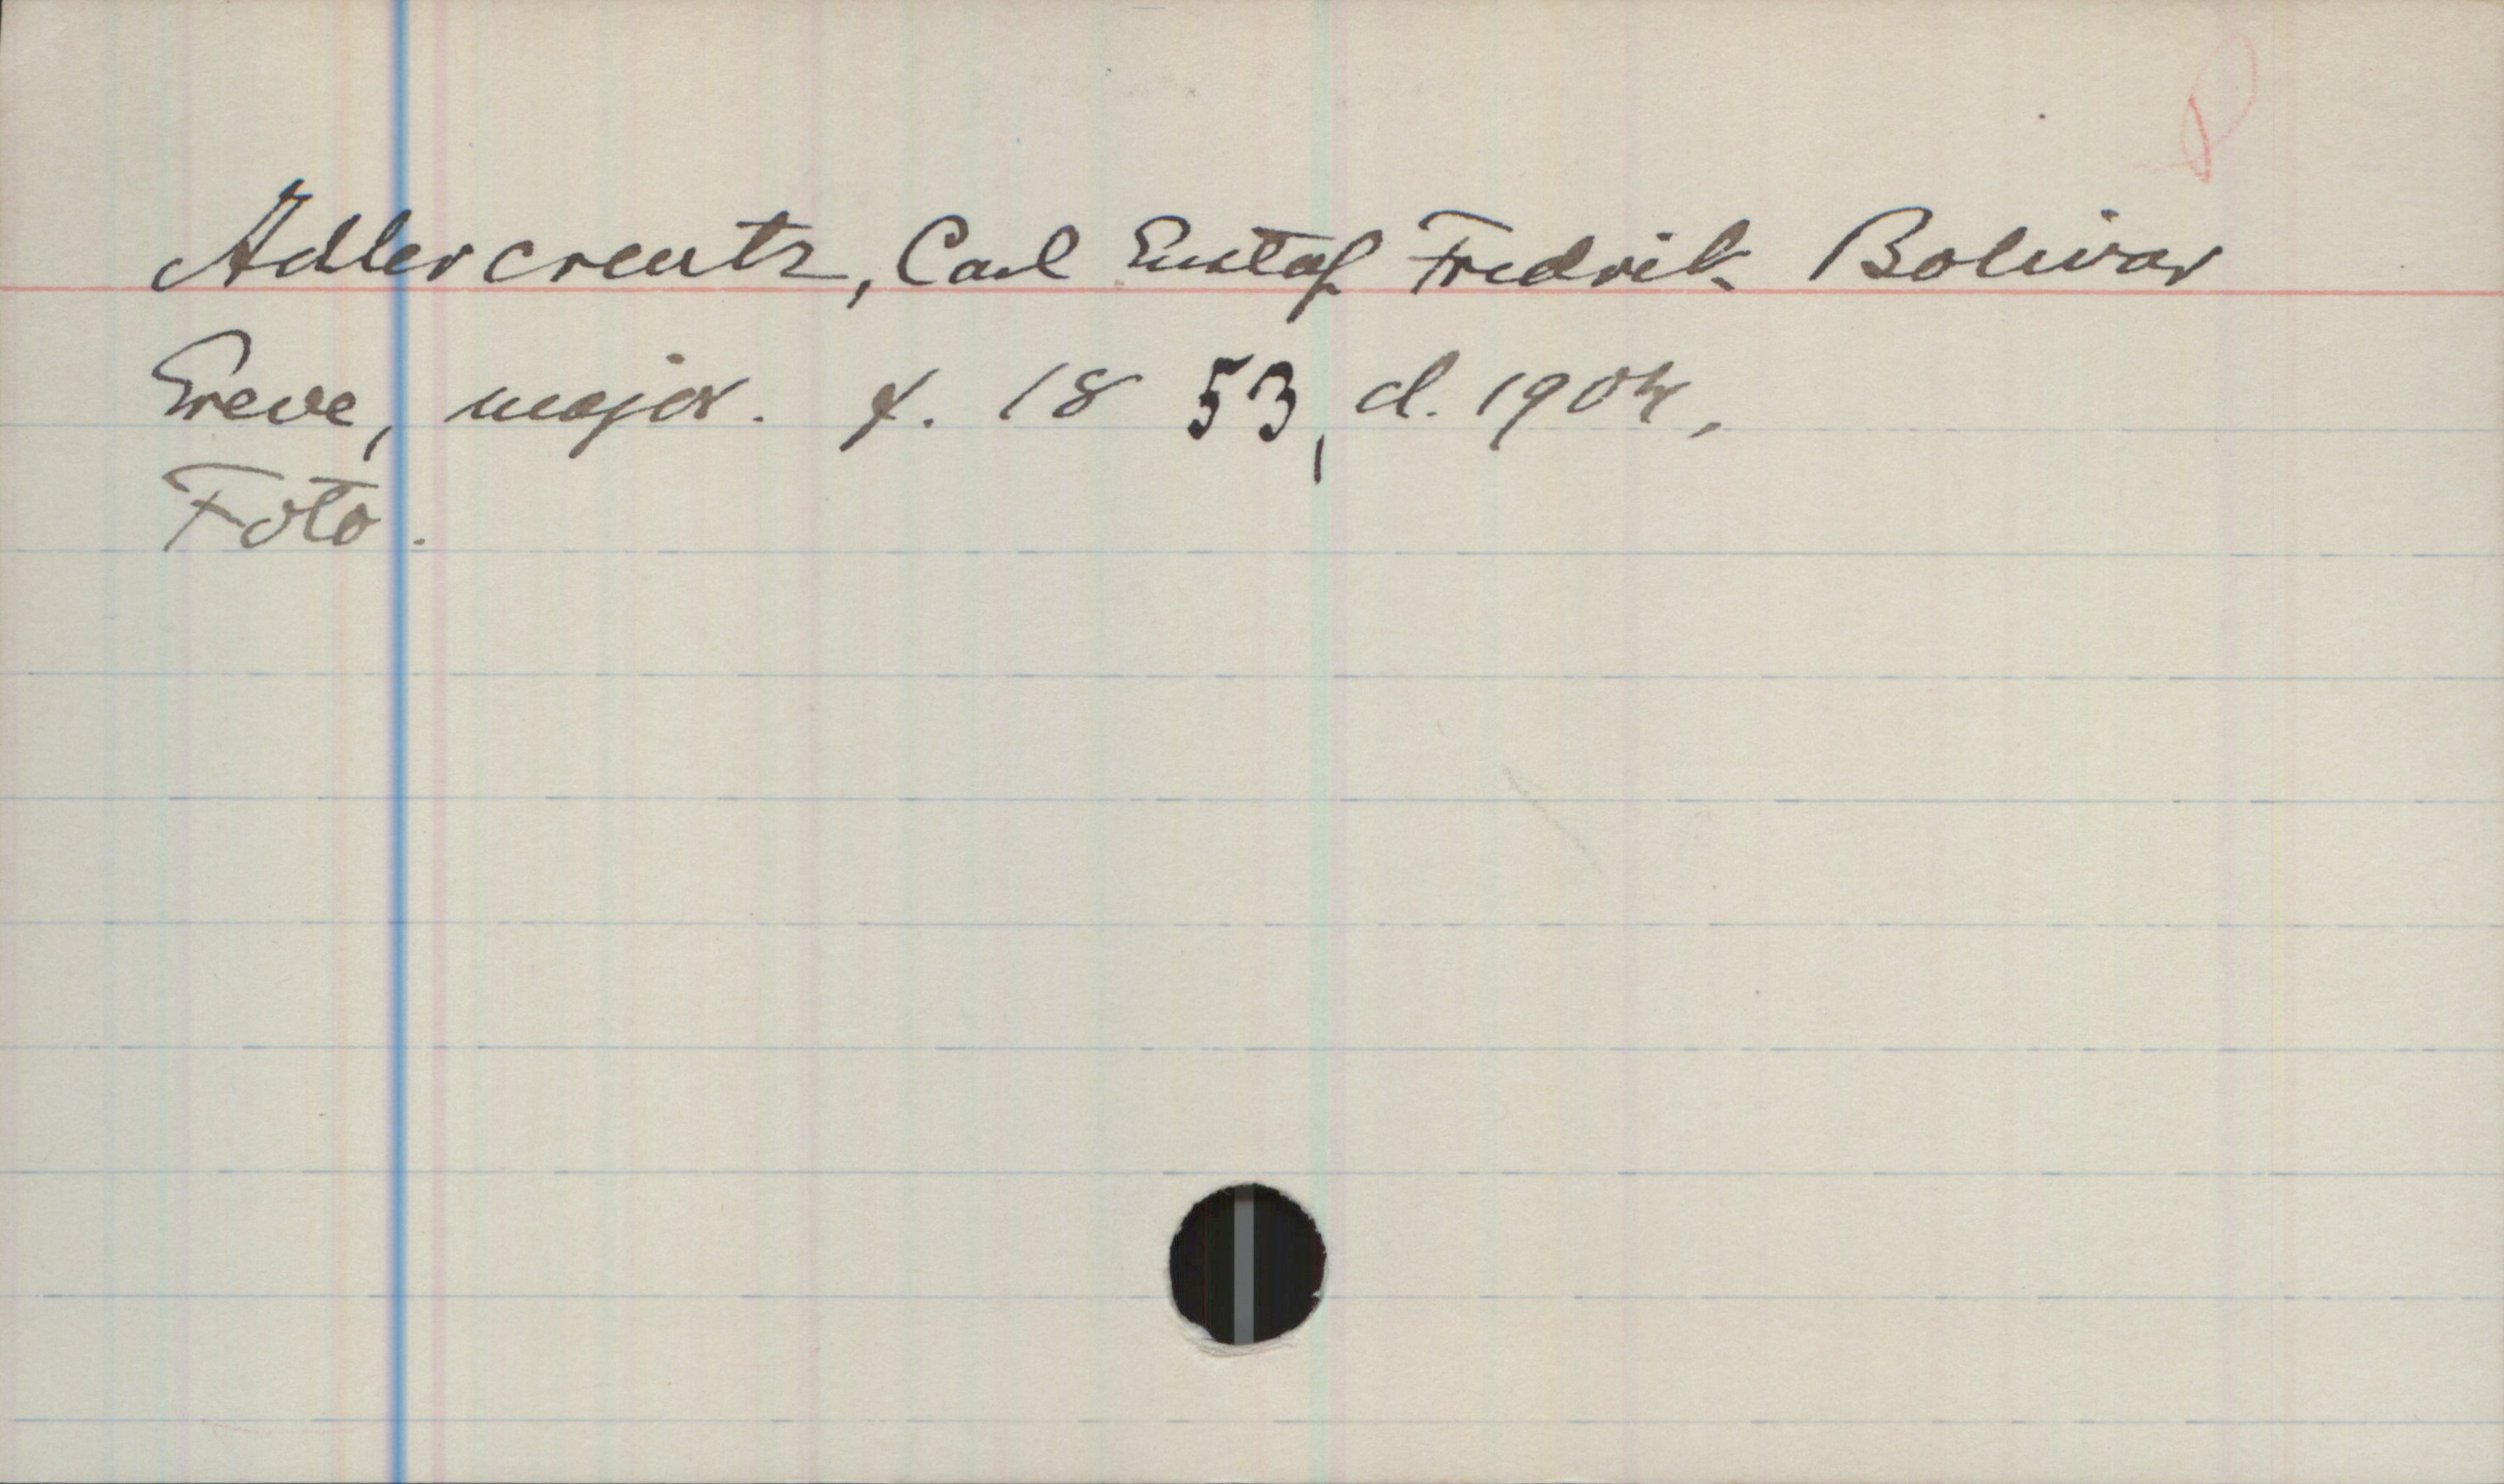 Adlercreutz, Carl Gustaf Fredrik Bolivar
Greve, major. f. 1853, d. 1904,
Foto.